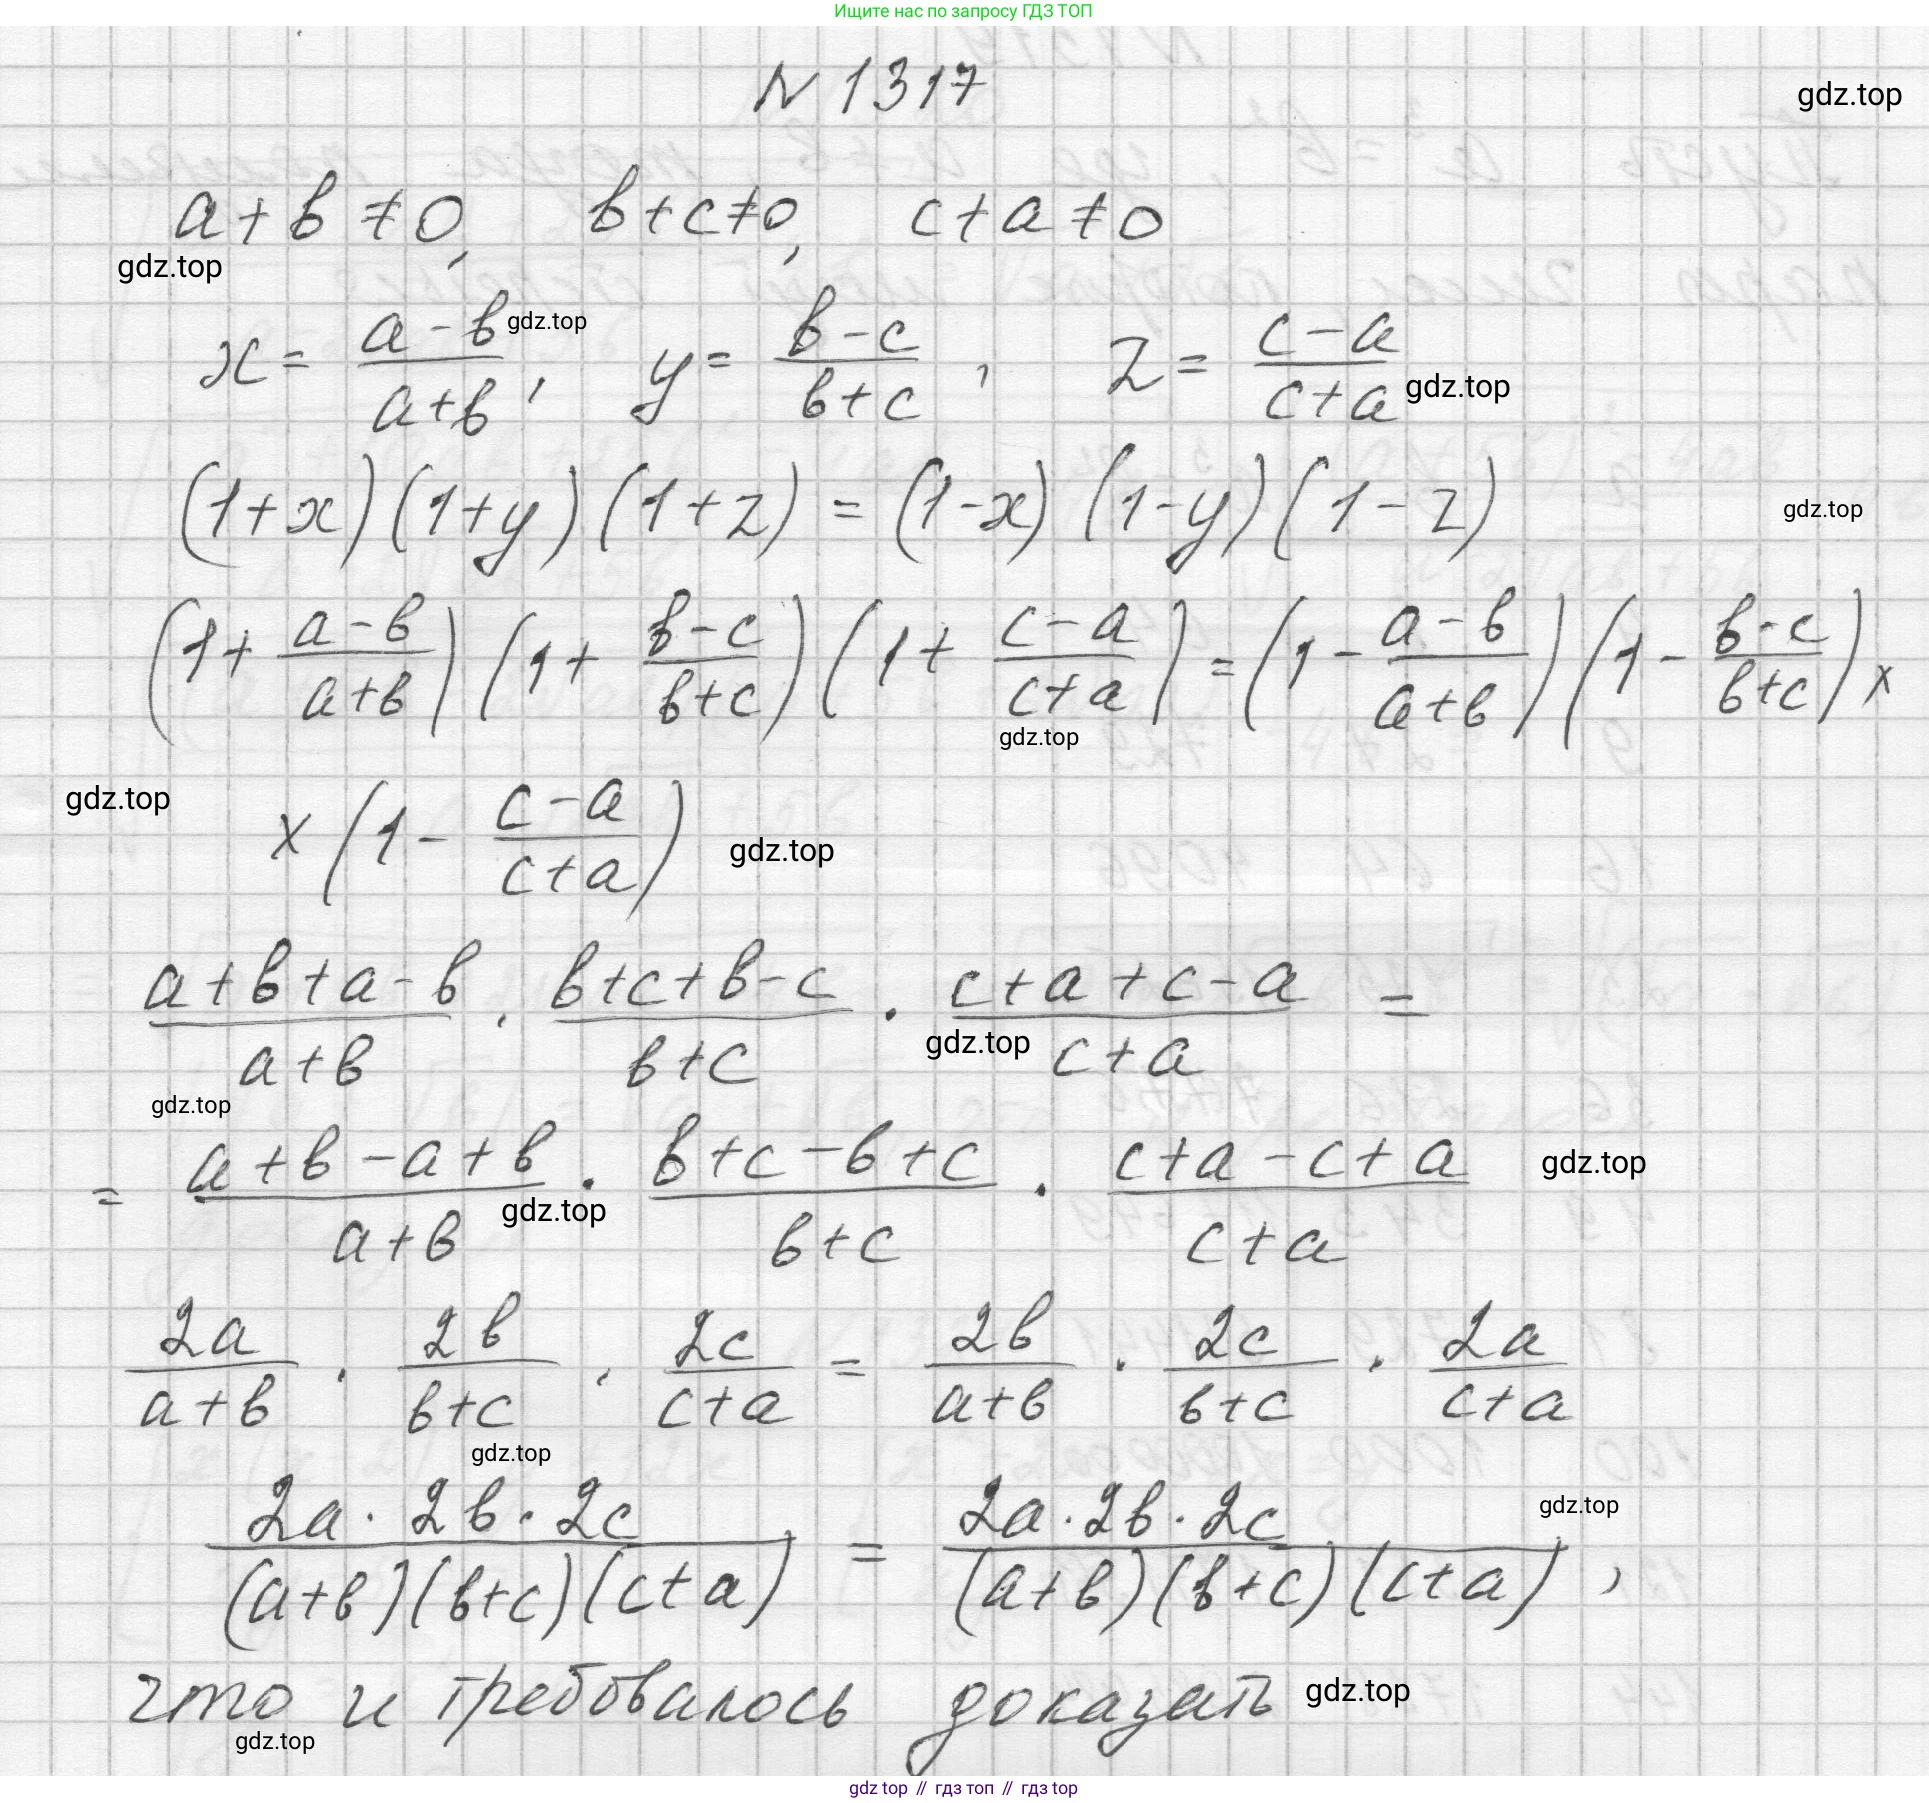 Ищите нас по запросу ГДЗ ТОП
N 1317
gdz.top
a + b ≠ 0, b + c ≠ 0, c + a ≠ 0
gdz.top
x = (a - b)/(a + b), y = (b - c)/(b + c), z = (c - a)/(c + a)
gdz.top
gdz.top
(1 + x)(1 + y)(1 + z) = (1 - x)(1 - y)(1 - z)
gdz.top
(1 + (a - b)/(a + b))(1 + (b - c)/(b + c))(1 + (c - a)/(c + a)) = (1 - (a - b)/(a + b))(1 - (b - c)/(b + c)) ×
gdz.top
gdz.top
× (1 - (c - a)/(c + a))
gdz.top
(a + b + a - b)/(a + b) · (b + c + b - c)/(b + c) · (c + a + c - a)/(c + a) =
gdz.top
gdz.top
= (a + b - a + b)/(a + b) · (b + c - b + c)/(b + c) · (c + a - c + a)/(c + a)
gdz.top
gdz.top
2a/(a + b) · 2b/(b + c) · 2c/(c + a) = 2b/(a + b) · 2c/(b + c) · 2a/(c + a)
gdz.top
(2a · 2b · 2c)/((a + b)(b + c)(c + a)) = (2a · 2b · 2c)/((a + b)(b + c)(c + a)),
gdz.top
что и требовалось доказать
gdz.top
gdz.top
gdz top // гдз топ // гдз top